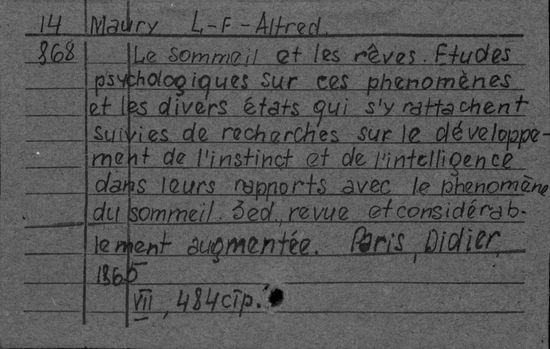 14 Maury L-F-Alfred.
868 Le sommeil et les rêves. Etudes
psychologiques sur ces phenomènes
et les divers états qui s'y rattachent
suivies de recherches sur le développe-
ment de l'instinct et de l'intelligence
dans leurs rapports avec le phenomène
du sommeil. 3ed., revue et considérab-
lement augmentée. Paris, Didier,
1865
VII, 484 cīp.